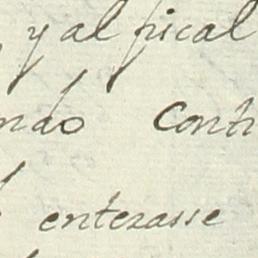 y al fiscal
ndo Conti
enterasse